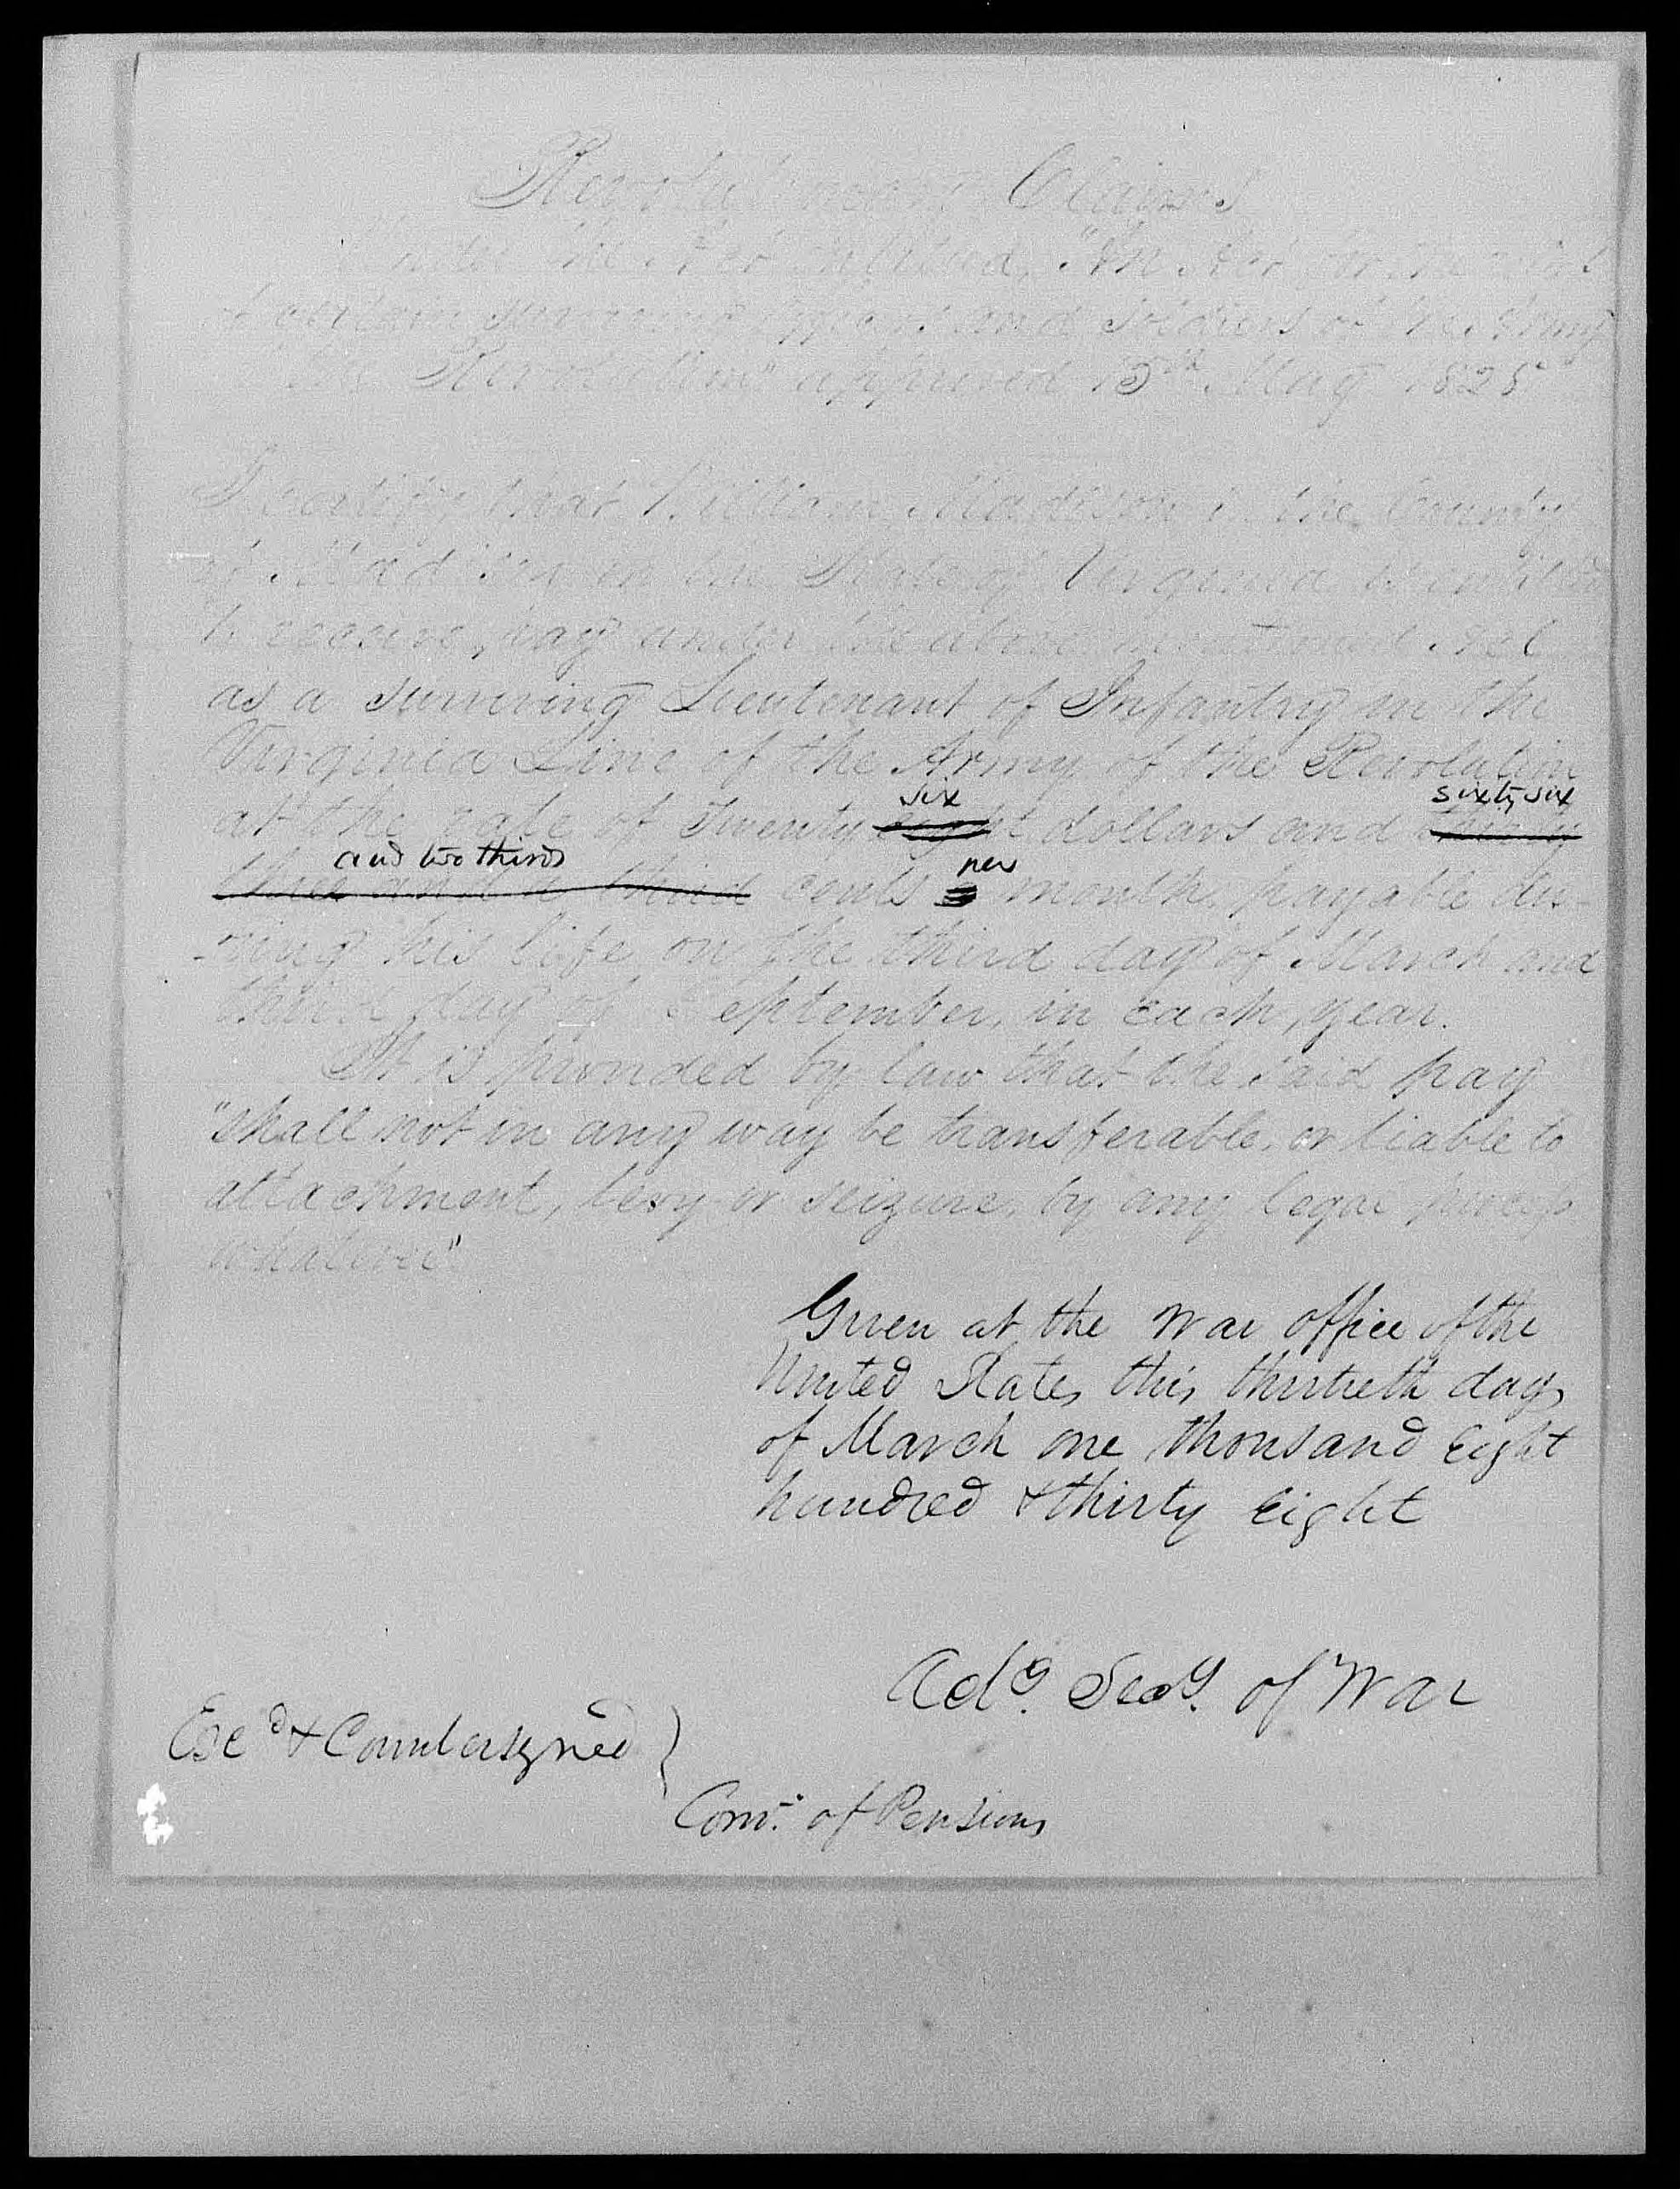 Revolutionary Claims
Under the Act entitled, "An Act for the relief
of certain surviving officers and soldiers of the Army
of the Revolution" approved 15th May 1828
I certify that William Madison in the County
of Madison in the State of Virginia is entitled
to receive pay under the above mentioned Act
as a surviving Lieutenant of Infantry in the
Virginia Line of the Army of the Revolution
six sixty six
at the rate of Twenty eight dollars and thirty
and two thirds per
three and a third cents a month, payable du-
-ring his life, on the third day of March and
third day of September, in each, year.
It is provided by law that the said pay
"shall not in any way be transferable, or liable to
attachment, levy or seizure, by any legal process
whatever"
Given at the War office of the
United States this thirtieth day
of March one thousand Eight
hundred & thirty Eight
Acdg. Secy. of War
Exd & Countersigned }
Comr. of Pensions